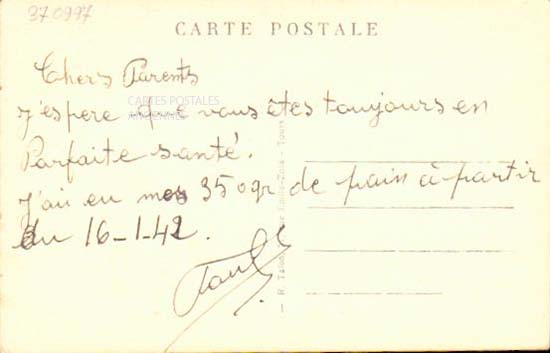 370997
CARTE POSTALE
Chers Parents
CARTES POSTALES
ANCIENNES
J'espere que vous êtes toujours en
Parfaite santé.
J'ai eu mes 350gr de pain à partir
du 16-1-42.